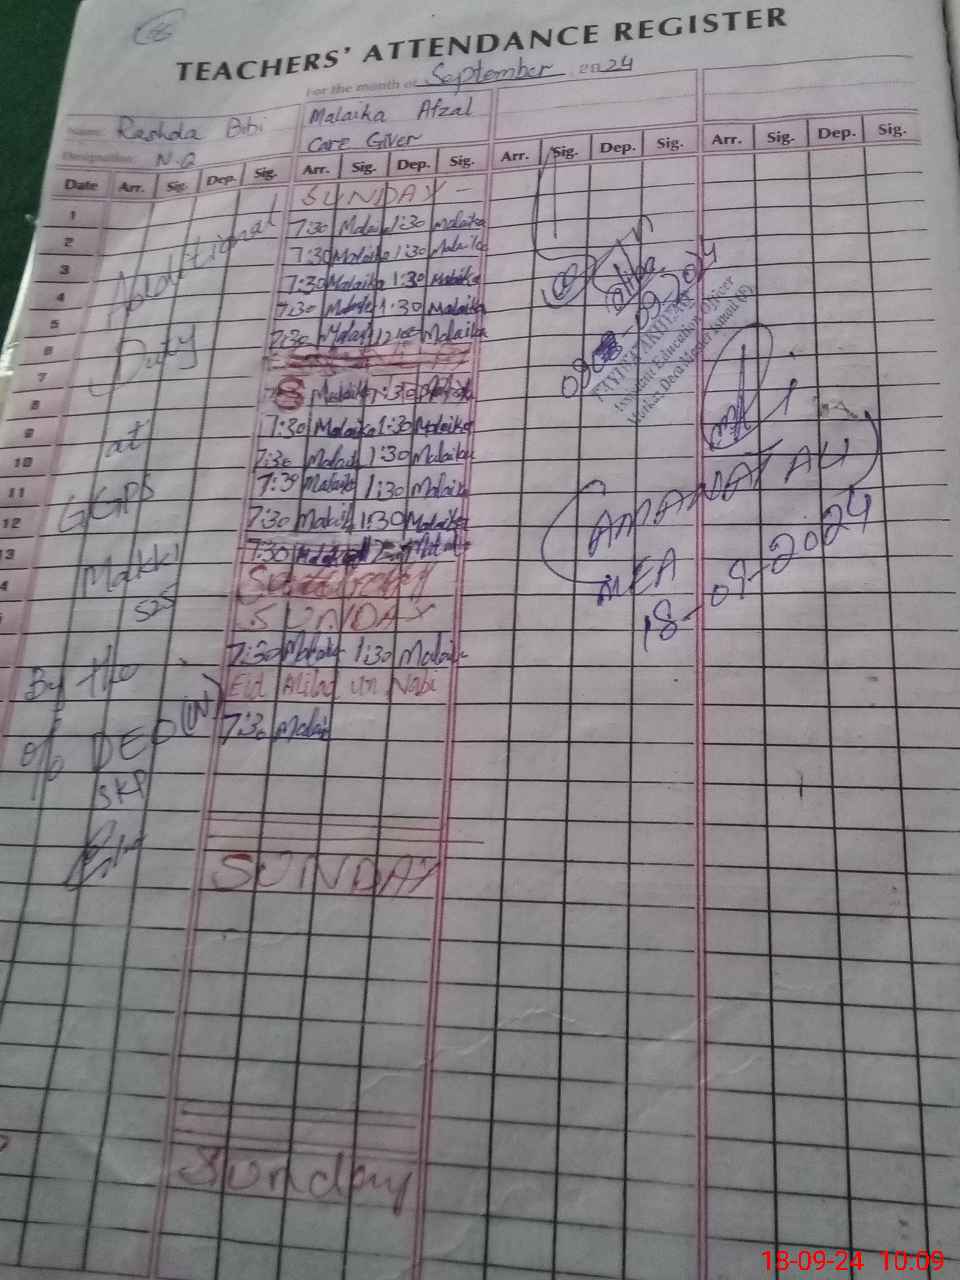 TEACHERS' ATTENDANCE REGISTER
For the month of September 2024
Name Rashda Bibi Malaika Afzal
Designation N.Q Care Giver
Date Arr. Sig. Dep. Sig. Arr. Sig. Dep. Sig. Arr. Sig. Dep. Sig. Arr. Sig. Dep. Sig.
1 SUNDAY
2 7:30 Malai 1:30 Malaika
3 7:30 Malaika 1:30 Malaika
4 7:30 Malaika 1:30 Malaika
5 7:30 1:30 Malaika
6 7:30 Malaika
7
8 1:30
9 7:30 Malaika 1:30 Malaika
10 7:30 Malaik 1:30 Malaika
11 7:30 Malaika 1:30 Malaik
12 7:30 Malaik 1:30 Malaika
13 7:30
SUNDAY
7:30 1:30 Malaik
Eid Milad un Nabi
7:30 Malai
SUNDAY
Sunday
Additional
Duty
at
GGPS
Makki
525
By the
o/o DEO (W)
SKP
09-2024
Assistant Education Officer
AMANAT ALI
MEA
18-09-2024
18-09-24 10:09